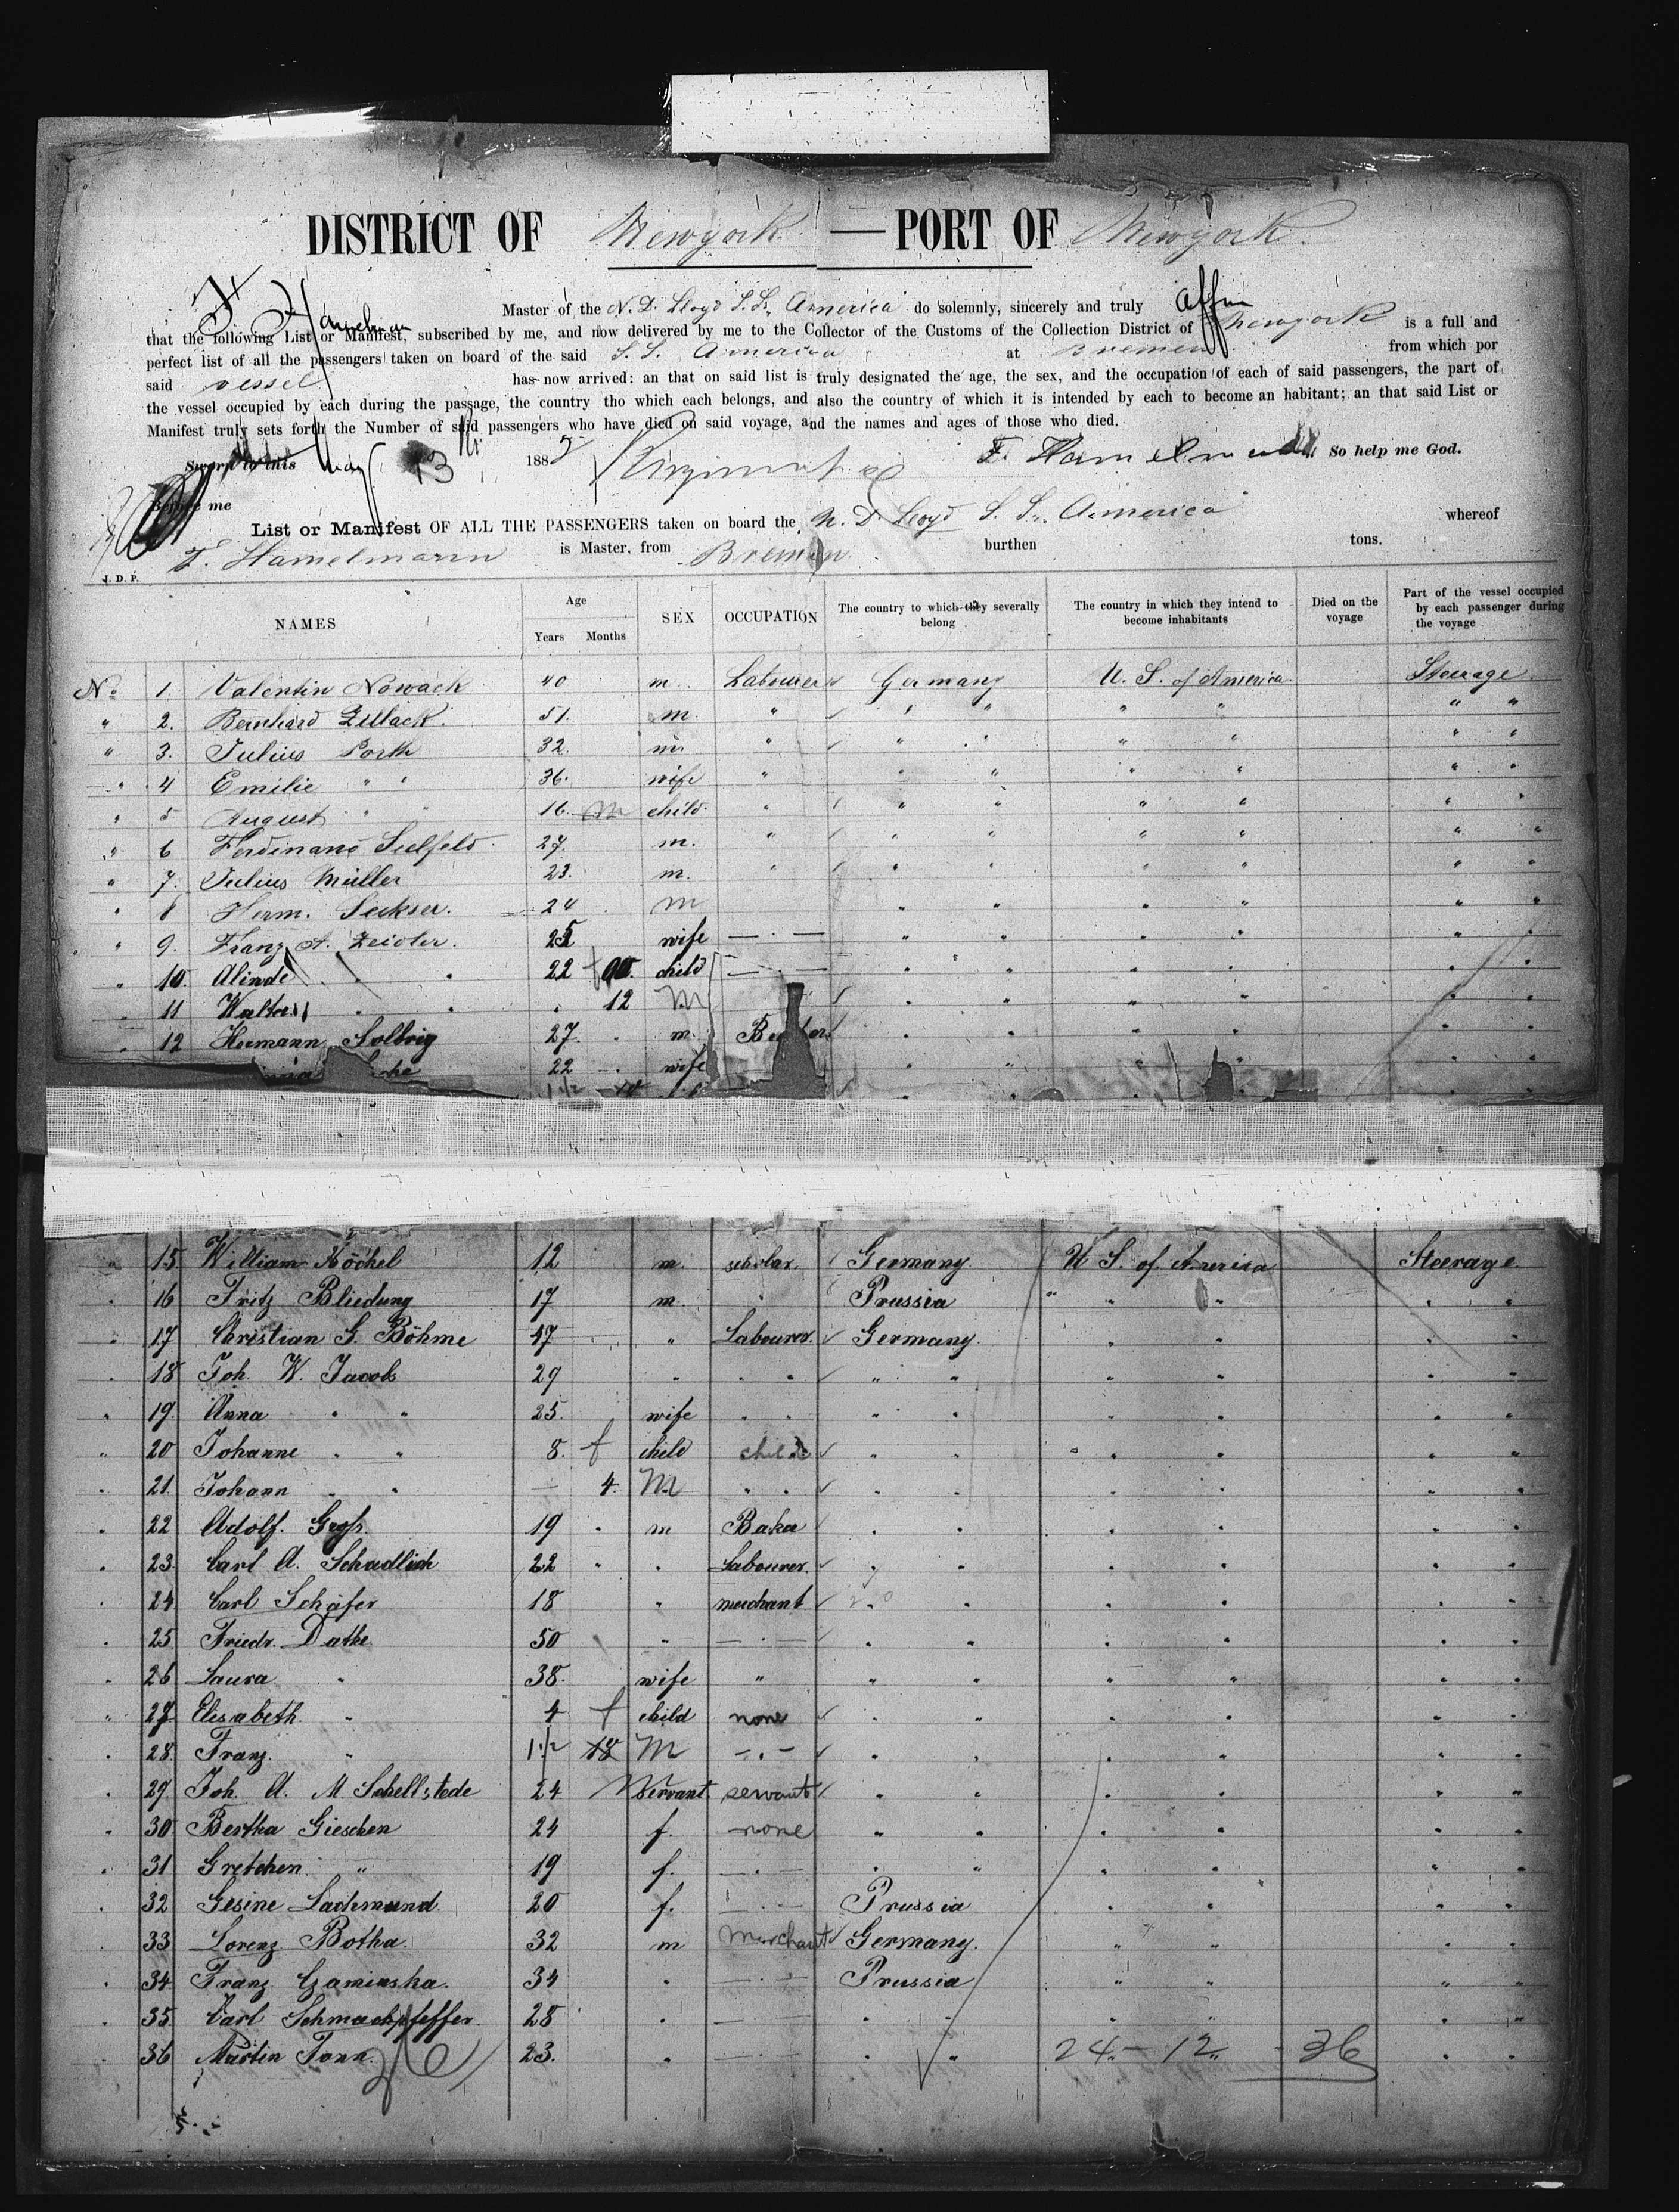 DISTRICT OF Newyork — PORT OF Newyork.
Master of the N. D. Lloyd S. S. America do solemnly, sincerely and truly affirm
that the following List or Manifest, subscribed by me, and now delivered by me to the Collector of the Customs of the Collection District of Newyork is a full and
perfect list of all the passengers taken on board of the said S. S. America at Bremen from which por
said vessel has now arrived: an that on said list is truly designated the age, the sex, and the occupation of each of said passengers, the part of
the vessel occupied by each during the passage, the country tho which each belongs, and also the country of which it is intended by each to become an habitant; an that said List or
Manifest truly sets forth the Number of said passengers who have died on said voyage, and the names and ages of those who died.
Sworn to this May 13 1885 F. Hamelmann So help me God.
Before me
List or Manifest OF ALL THE PASSENGERS taken on board the N. D. Lloyd S. S. America whereof
F. Hamelmann is Master, from Bremen burthen tons.
J. D. P.
NAMES Age Years Months SEX OCCUPATION The country to which they severally belong The country in which they intend to become inhabitants Died on the voyage Part of the vessel occupied by each passenger during the voyage
No 1. Valentin Nowack 40 m Labourer Germany U. S. of America Steerage
" 2. Bernhard Zillack. 51. m. " " " " " " "
" 3. Julius Porth 32. m. " " " " " " "
" 4 Emilie " " 36. wife " " " " " " "
" 5 August " " 16. m child. " " " " " " "
" 6 Ferdinand Seelfeld 27. m. " " " " " " "
" 7. Julius Müller 23. m. " " " " " " "
" 8 Herm. 24 m " " " " " "
" 9. Franz A. Zeidler. 25 wife — " — " " " " " "
" 10. Alinde " " 22 f child — " — " " " " " "
" 11 Walter " " " 12 M " " " " " "
" 12 Hermann Solbrig 27. m. " " " " " "
22 wife " " " " " "
1 1/2
" 15. William Köchel 12 m. scholar. Germany U S. of America Steerage
" 16 Fritz Bliedung 17 m. " Prussia " " " " "
" 17 Christian G. Böhme 47 " Labourer. Germany. " " " "
" 18 Joh. W. Jacobs 29 " " " " " " " " "
" 19. Anna " " 25. wife " " " " " " " "
" 20 Johanne " " 8. f child child " " " " " "
" 21. Johann " " — 4. M " " " " " " " "
" 22 Adolf. Gross. 19 " m Baker " " " " " "
" 23. Carl A. Schadlich 22 " " Labourer. " " " " " "
" 24 Carl Schäfer 18 " merchant " " " " " "
" 25. Friedr. Dathe 50 " — " — " " " " " "
" 26 Laura " 38. wife " " " " " " "
" 27 Elisabeth. " 4 f child none " " " " " "
" 28. Franz. " 1 1/2 18 M — " — " " " " " "
" 29. Joh. A. M. Schellstede 24 Servant servant " " " " " "
" 30. Bertha Gieschen 24 f. none " " " " " "
" 31 Gretchen. " 19 f. — " — " " " " " "
" 32 Gesine Lachmund. 20 f. — " — Prussia " " " "
" 33 Lorenz Botha. 32 m Merchant Germany. " " " "
" 34 Franz Czaminska. 34 " — " — Prussia " " " "
" 35. Carl Schmachpfeffer. 28 " — " — " " " " " "
" 36 Martin Tonn. 23. " — " — " " 24 — 12 — 36 " "